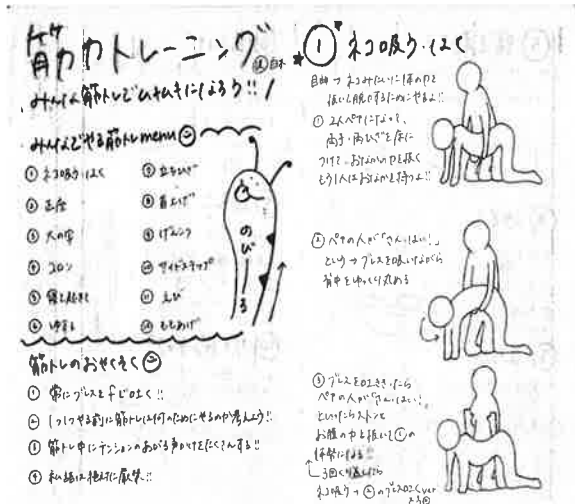 筋力トレーニング
みんな筋トレでムキムキになろう!!
みんなでやる筋トレmenu
① ネコ吸う・はく
② 正座
③ 大の字
④ コロン
⑦ 立ちひざ
⑧ 首上げ
⑨ げんこつ
⑩ サイドステップ
⑪ えび
⑫ ももあげ
のび
る
筋トレのおやくそく
① 常にブレスとfで吐く!!
② 1つ1つやる前に筋トレは何のためにやるのか考えよう!!
③ 筋トレ中にテンションのあがる声かけをたくさんする!!
④ 私語は絶対に厳禁!!
① ネコ吸う・はく
目的→ネコみたいに体の力を
抜いて脱力するためにやるよ!!
① 2人ペアになって、
両手・両ひざを床に
つけて、おなかの力を抜く
もう1人はおなかを持つよ!!
② ペアの人が「さんっはい!」
という→ブレスを吸いながら
背中をゆっくり丸める
③ ブレスを吐ききったら
ペアの人が「さんっはい!」
といったらストンと
お腹の力を抜いて①の
体勢になる!!
3回くり返したら
ネコ吸う→②のブレス吐くver